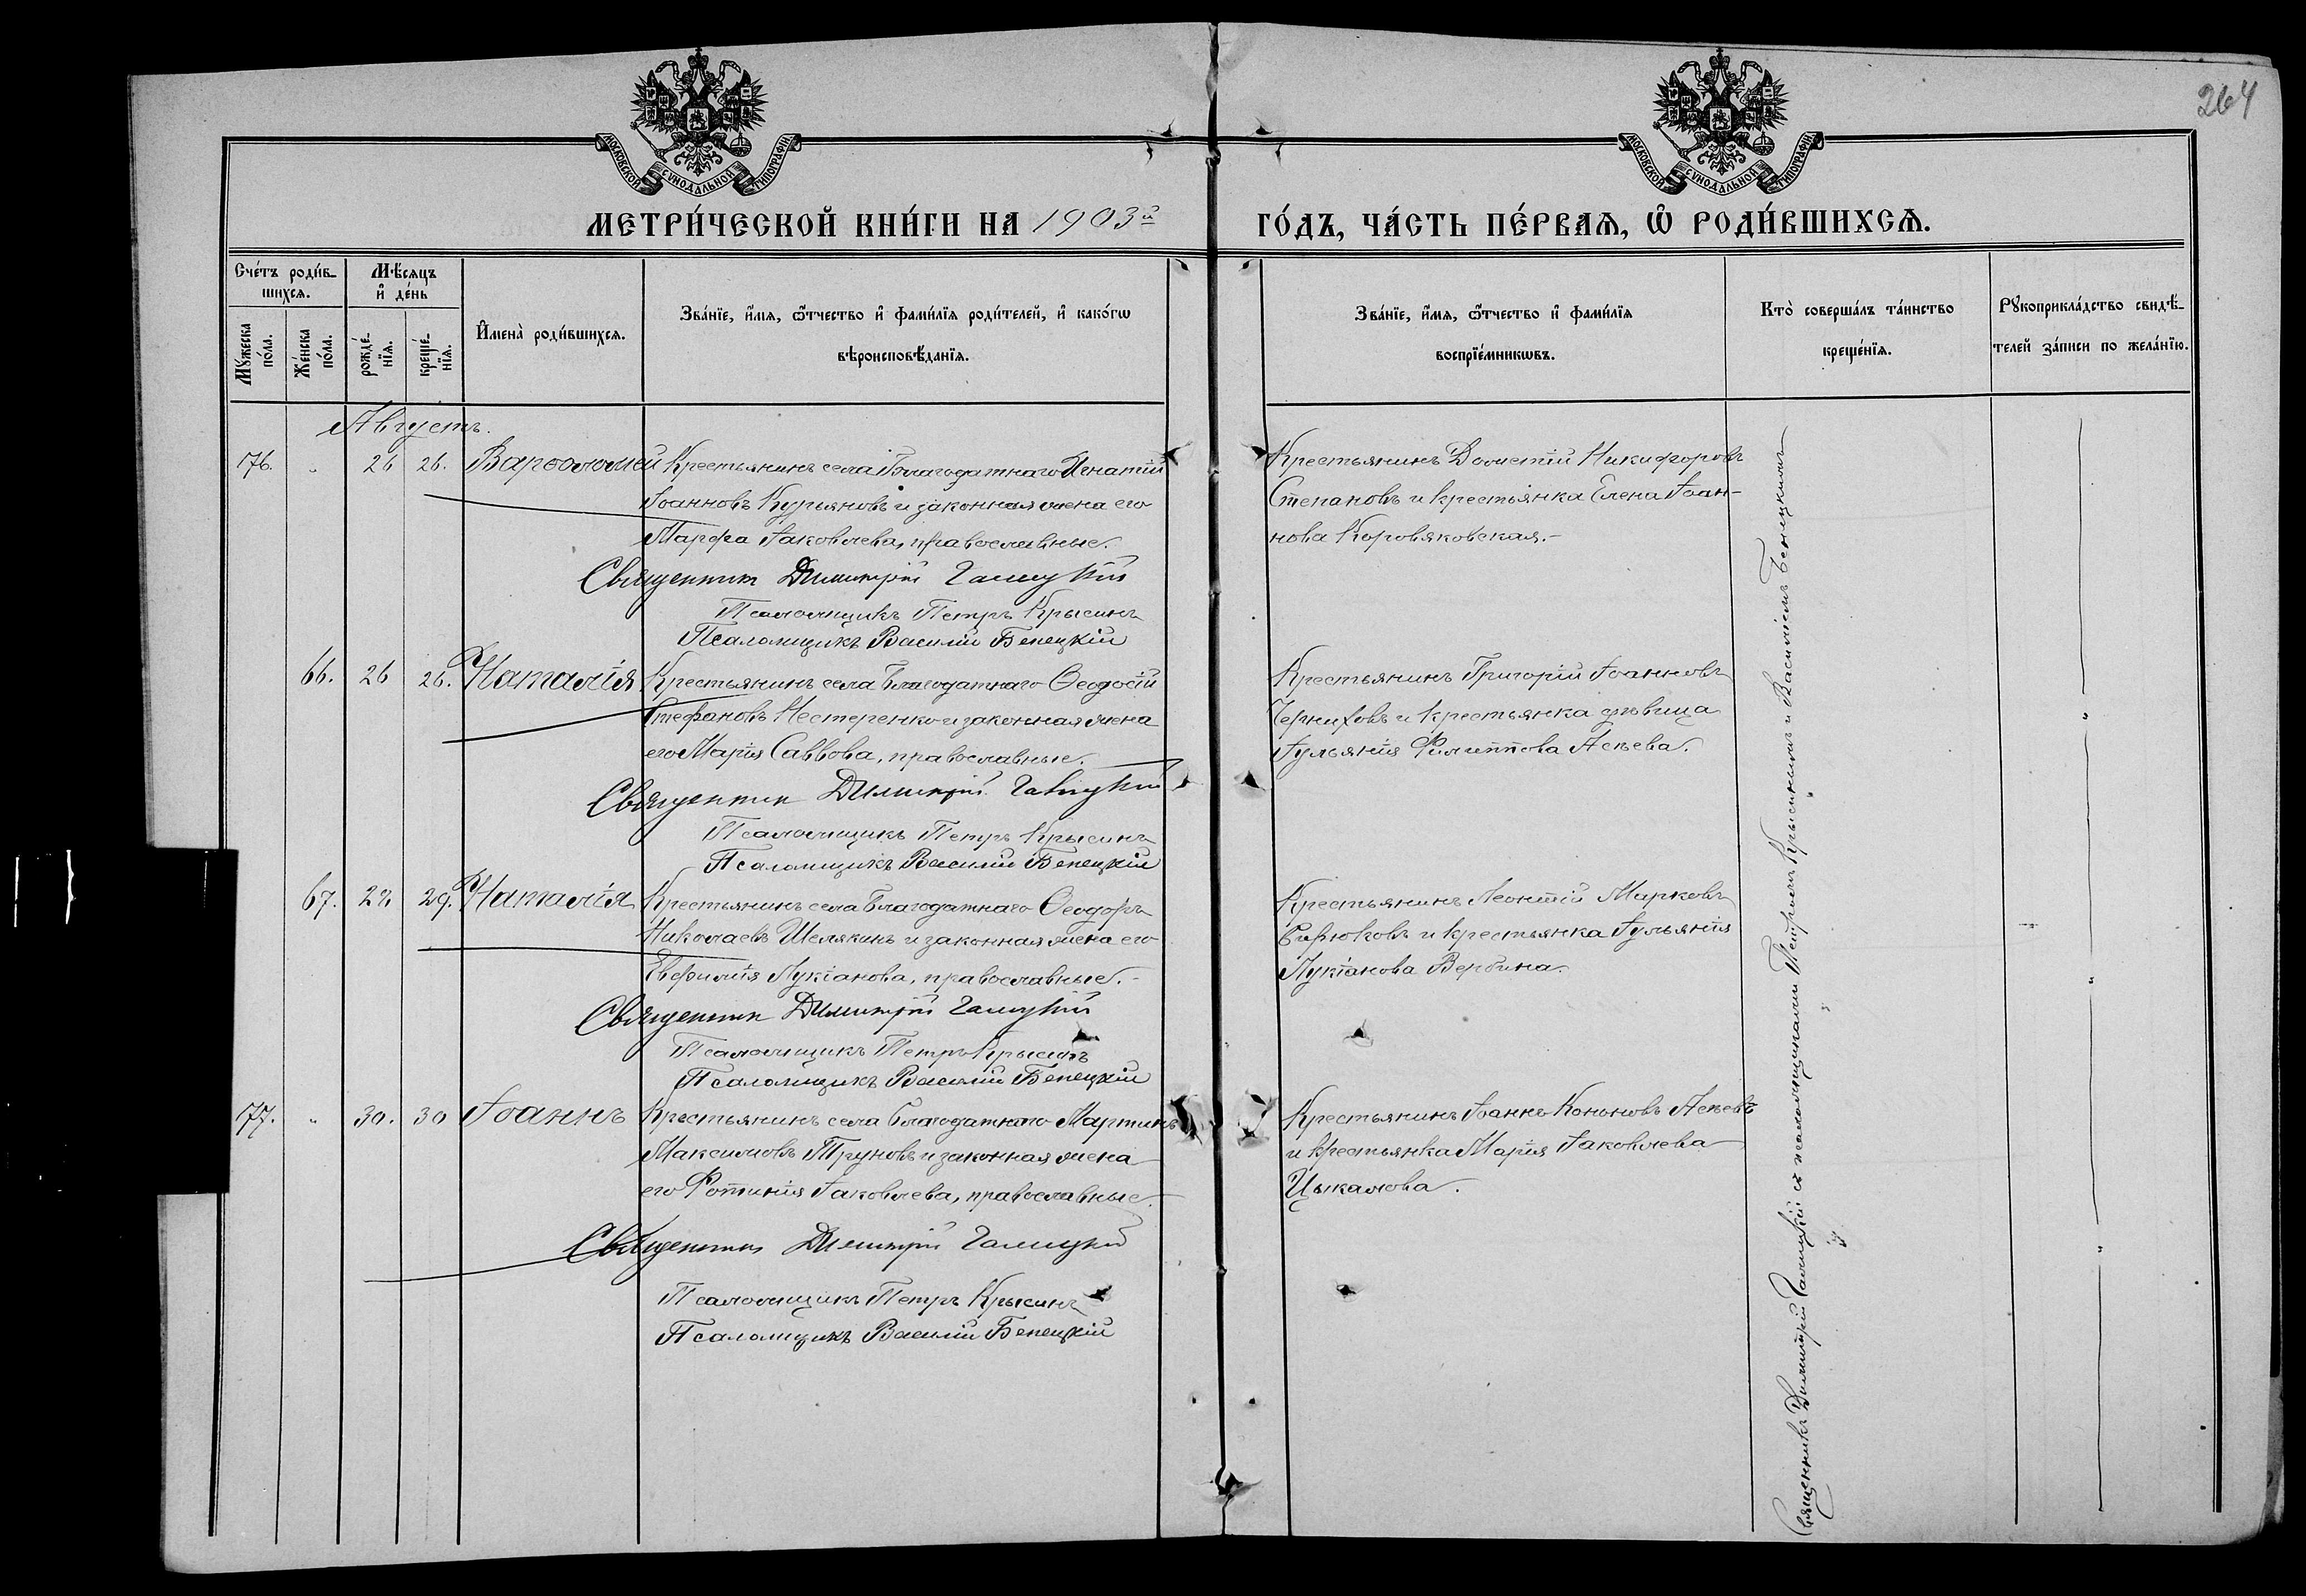 264
МОСКОВСКОЙ СѴНОДАЛЬНОЙ ТИПОГРАФІИ
МОСКОВСКОЙ СѴНОДАЛЬНОЙ ТИПОГРАФІИ
МЕТРИ́ЧЕСКОЙ КНИ́ГИ НА 1903й
ГО́ДЪ, ЧА́СТЬ ПЕ́РВАѦ, Ѡ҆ РОДИ́ВШИХСѦ.
Сче́тъ роди́в-
шихсѧ.
Мѣ́сѧцъ
и҆ де́нь
Мꙋ́жеска
по́ла.
Же́нска
по́ла.
рожде́-
нїѧ.
креще́-
нїѧ.
И҆мена̀ роди́вшихсѧ.
Зва́нїе, и҆́мѧ, ѻ҆́тчество и҆ фами́лїѧ роди́телей, и҆ како́гѡ
вѣроисповѣ́данїѧ.
Зва́нїе, и҆́мѧ, ѻ҆́тчество и҆ фами́лїѧ
воспрїе́мникѡвъ.
Кто̀ соверша́лъ та́инство
креще́нїѧ.
Рꙋкоприкла́дство свидѣ́-
телей за́писи по жела́нїю.
Августъ.
176. " 26 26. Варѳоломей Крестьянинъ села Благодатнаго Игнатій
Іоанновъ Курьяновъ и законная жена его
Марфа Іаковлева, православные.
Священник Димитрій Галицкій
Псаломщикъ Петръ Крысинъ
Псаломщикъ Василій Бенецкій
Крестьянинъ Дометій Никифоровъ
Степановъ и крестьянка Елена Іоан-
нова Коровяковская.-
66. 26 26. Наталія Крестьянинъ села Благодатнаго Ѳеодосій
Стефановъ Нестеренко и законная жена
его Марія Саввова, православные.
Священник Димитрій Галицкій
Псаломщикъ Петръ Крысинъ
Псаломщикъ Василій Бенецкій
Крестьянинъ Григорій Іоанновъ
Черниховъ и крестьянка дѣвица
Іульянія Филиппова Асѣева.
67. 28. 29. Наталія Крестьянинъ села Благодатнаго Ѳеодоръ
Николаевъ Шелякинъ и законная жена его
Евфимія Лукіанова, православные.-
Священник Димитрій Галицкій
Псаломщикъ Петръ Крысинъ
Псаломщикъ Василій Бенецкій
Крестьянинъ Леонтій Марковъ
Бирюковъ и крестьянка Іульянія
Лукіанова Вербина.
77. " 30. 30 Іоаннъ Крестьянинъ села Благодатнаго Мартинъ
Максимовъ Труновъ и законная жена
его Фотинія Іаковлева, православные.
Священник Димитрій Галицкій
Псаломщикъ Петръ Крысинъ
Псаломщикъ Василій Бенецкій
Крестьянинъ Іоаннъ Кононовъ Асѣевъ
и крестьянка Марія Іаковлева
Цыкалова.
Священникъ Димитрій Галицкій съ псаломщиками Петромъ Крысинымъ и Василіемъ Бенецкимъ